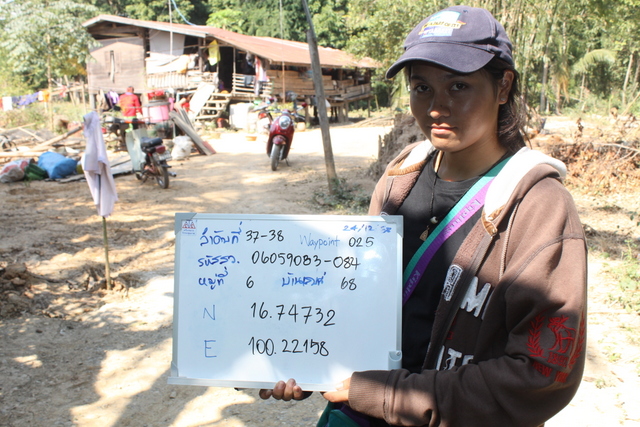 24/12/58
ลำดับที่ 37-38 Waypoint 025
รหัสรว. 06059083-084
หมู่ที่ 6 บ้านเลขที่ 68
N 16.74732
E 100.22158